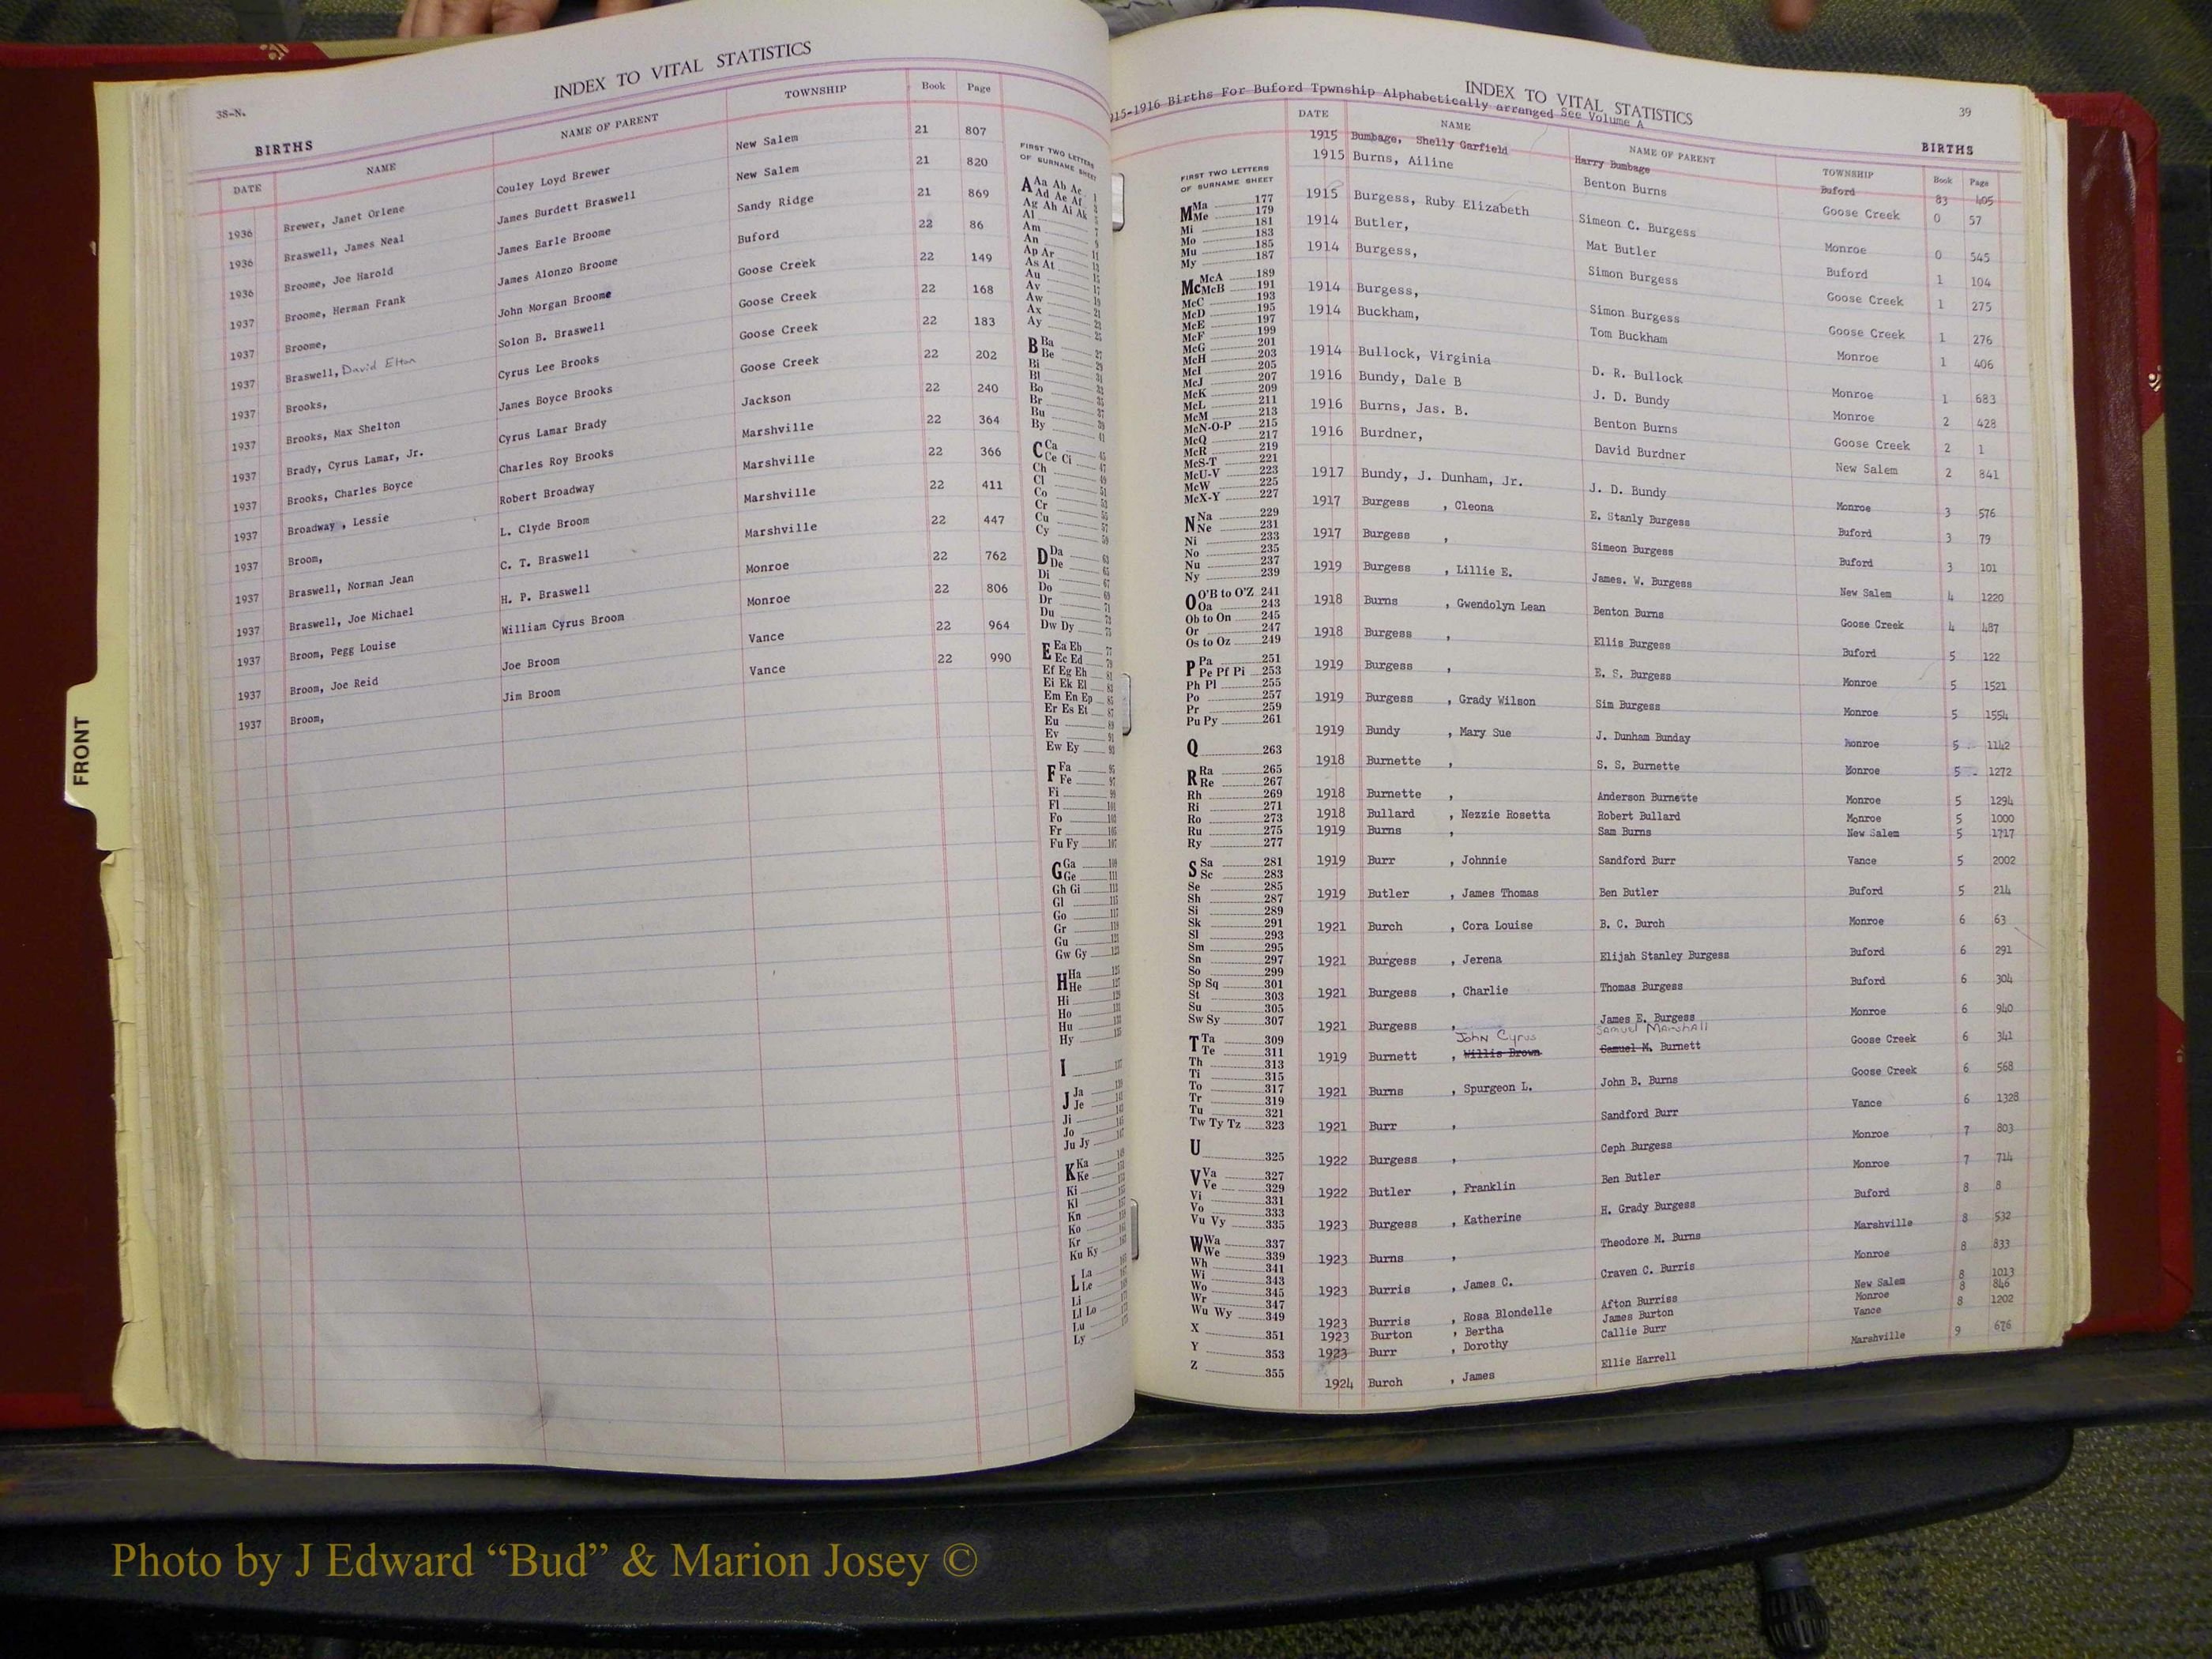 38-N.
INDEX TO VITAL STATISTICS
BIRTHS
DATE NAME NAME OF PARENT TOWNSHIP Book Page
1936 Brewer, Janet Orlene Couley Loyd Brewer New Salem 21 807
1936 Braswell, James Neal James Burdett Braswell New Salem 21 820
1936 Broome, Joe Harold James Earle Broome Sandy Ridge 21 869
1937 Broome, Herman Frank James Alonzo Broome Buford 22 86
1937 Broome, John Morgan Broome Goose Creek 22 149
1937 Braswell, David Elton Solon B. Braswell Goose Creek 22 168
1937 Brooks, Cyrus Lee Brooks Goose Creek 22 183
1937 Brooks, Max Shelton James Boyce Brooks Goose Creek 22 202
1937 Brady, Cyrus Lamar, Jr. Cyrus Lamar Brady Jackson 22 240
1937 Brooks, Charles Boyce Charles Roy Brooks Marshville 22 364
1937 Broadway , Lessie Robert Broadway Marshville 22 366
1937 Broom, L. Clyde Broom Marshville 22 411
1937 Braswell, Norman Jean C. T. Braswell Marshville 22 447
1937 Braswell, Joe Michael H. P. Braswell Monroe 22 762
1937 Broom, Pegg Louise William Cyrus Broom Monroe 22 806
1937 Broom, Joe Reid Joe Broom Vance 22 964
1937 Broom, Jim Broom Vance 22 990
FIRST TWO LETTERS
OF SURNAME SHEET
A Aa Ab Ac 1
Ad Ae Af
Ag Ah Ai Ak
Al
Am
An
Ap Ar
As At
Au
Av
Aw
Ax
Ay
B Ba
Be
Bi
Bl
Bo
Br
Bu
By
C Ca
Ce Ci
Ch
Cl
Co
Cr
Cu
Cy
D Da
De
Di
Do
Dr
Du
Dw Dy
E Ea Eb
Ec Ed
Ef Eg Eh
Ei Ek El
Em En Ep
Er Es Et
Eu
Ev
Ew Ey
F Fa
Fe
Fi
Fl
Fo
Fr
Fu Fy
G Ga
Ge
Gh Gi
Gl
Go
Gr
Gu
Gw Gy
H Ha
He
Hi
Ho
Hu
Hy
I
J Ja
Je
Ji
Jo
Ju Jy
K Ka
Ke
Ki
Kl
Kn
Ko
Kr
Ku Ky
L La
Le
Li
Ll Lo
Lu
Ly
FRONT
39
INDEX TO VITAL STATISTICS
15-1916 Births For Buford Tpwnship Alphabetically arranged See Volume A
BIRTHS
DATE NAME NAME OF PARENT TOWNSHIP Book Page
1915 Bumbage, Shelly Garfield Harry Bumbage Buford 83 405
1915 Burns, Ailine Benton Burns Goose Creek 0 57
1915 Burgess, Ruby Elizabeth Simeon C. Burgess Monroe 0 545
1914 Butler, Mat Butler Buford 1 104
1914 Burgess, Simon Burgess Goose Creek 1 275
1914 Burgess, Simon Burgess Goose Creek 1 276
1914 Buckham, Tom Buckham Monroe 1 406
1914 Bullock, Virginia D. R. Bullock Monroe 1 683
1916 Bundy, Dale B J. D. Bundy Monroe 2 428
1916 Burns, Jas. B. Benton Burns Goose Creek 2 1
1916 Burdner, David Burdner New Salem 2 841
1917 Bundy, J. Dunham, Jr. J. D. Bundy Monroe 3 576
1917 Burgess , Cleona E. Stanly Burgess Buford 3 79
1917 Burgess , Simeon Burgess Buford 3 101
1919 Burgess , Lillie E. James. W. Burgess New Salem 4 1220
1918 Burns , Gwendolyn Lean Benton Burns Goose Creek 4 487
1918 Burgess , Ellis Burgess Buford 5 122
1919 Burgess , E. S. Burgess Monroe 5 1521
1919 Burgess , Grady Wilson Sim Burgess Monroe 5 1554
1919 Bundy , Mary Sue J. Dunham Bunday Monroe 5 1142
1918 Burnette , S. S. Burnette Monroe 5 1272
1918 Burnette , Anderson Burnette Monroe 5 1294
1918 Bullard , Nezzie Rosetta Robert Bullard Monroe 5 1000
1919 Burns , Sam Burns New Salem 5 1717
1919 Burr , Johnnie Sandford Burr Vance 5 2002
1919 Butler , James Thomas Ben Butler Buford 5 214
1921 Burch , Cora Louise B. C. Burch Monroe 6 63
1921 Burgess , Jerena Elijah Stanley Burgess Buford 6 291
1921 Burgess , Charlie Thomas Burgess Buford 6 304
1921 Burgess , James E. Burgess Monroe 6 940
John Cyrus Samuel Marshall
1919 Burnett , Willis Brown Samuel M. Burnett Goose Creek 6 341
1921 Burns , Spurgeon L. John B. Burns Goose Creek 6 568
1921 Burr , Sandford Burr Vance 6 1328
1922 Burgess , Ceph Burgess Monroe 7 803
1922 Butler , Franklin Ben Butler Monroe 7 714
1923 Burgess , Katherine H. Grady Burgess Buford 8 8
1923 Burns , Theodore M. Burns Marshville 8 532
1923 Burris , James C. Craven C. Burris Monroe 8 833
1923 Burris , Rosa Blondelle Afton Burriss New Salem 8 1013
1923 Burton , Bertha James Burton Monroe 8 846
1923 Burr , Dorothy Callie Burr Vance 8 1202
1924 Burch , James Ellie Harrell Marshville 9 676
FIRST TWO LETTERS
OF SURNAME SHEET
M Ma 177
Me 179
Mi 181
Mo 183
Mu 185
My 187
Mc McA 189
McB 191
McC 193
McD 195
McE 197
McF 199
McG 201
McH 203
McI 205
McJ 207
McK 209
McL 211
McM 213
McN-O-P 215
McQ 217
McR 219
McS-T 221
McU-V 223
McW 225
McX-Y 227
N Na 229
Ne 231
Ni 233
No 235
Nu 237
Ny 239
O O'B to O'Z 241
Oa 243
Ob to On 245
Or 247
Os to Oz 249
P Pa 251
Pe Pf Pi 253
Ph Pl 255
Po 257
Pr 259
Pu Py 261
Q 263
R Ra 265
Re 267
Rh 269
Ri 271
Ro 273
Ru 275
Ry 277
S Sa 281
Sc 283
Se 285
Sh 287
Si 289
Sk 291
Sl 293
Sm 295
Sn 297
So 299
Sp Sq 301
St 303
Su 305
Sw Sy 307
T Ta 309
Te 311
Th 313
Ti 315
To 317
Tr 319
Tu 321
Tw Ty Tz 323
U 325
V Va 327
Ve 329
Vi 331
Vo 333
Vu Vy 335
W Wa 337
We 339
Wh 341
Wi 343
Wo 345
Wr 347
Wu Wy 349
X 351
Y 353
Z 355
Photo by J Edward “Bud” & Marion Josey ©